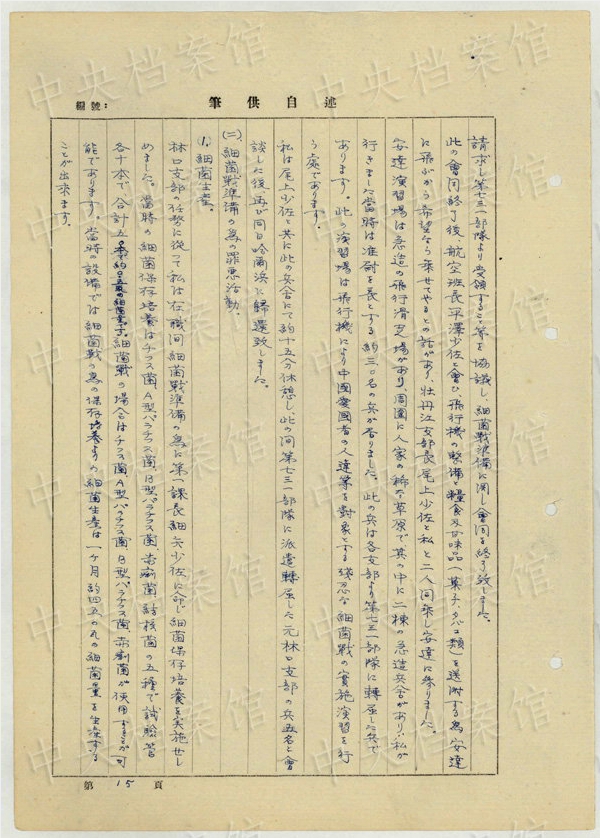 述自供筆
編號：
請求し第七三一部隊より受領すること等を協議し、細菌戰準備に関し會同を終了致しました。
此の會同終了後航空班長平澤少佐と會ひ飛行機の整備と糧食及甘味品(菓子、タバコ類)を送附する為安達
に飛ぶから希望なら乗せてやるとの話があり、牡丹江支部長尾上少佐と私と二人同乗し安達に参りました。
安達演習場は急造の飛行滑走場があり、周圍に人家の稀な草原で其の中に二棟の急造兵舎があり、私が
行きました當時は准尉を長とする約三〇名の兵が居りました。此の兵は各支部より第七三一部隊に轉屬した兵で
あります。此の演習場は飛行機により中國愛國者の人達等を対象とする残忍な細菌戰の實施演習を行
う處であります。
私は尾上少佐と共に此の兵舎にて約十五分休憩し、此の間第七三一部隊に派遣轉屬した元林口支部の兵五名と會
談した後再び同日哈爾浜に歸還致しました。
(二)、細菌戰準備の為の罪悪活動。
1. 細菌生産。
林口支部の任務に從って私は在職間細菌戰準備の為に第一課長細矢少佐に命じ細菌保存培養を実施せし
めました。當時の細菌保存培養はチフス菌、A型パラチフス菌、B型パラチフス菌、赤痢菌、結核菌の五種で試驗管
各十本で合計五〇本で約〇・五瓩の細菌量です。細菌戰の場合はチフス菌、A型パラチフス菌、B型パラチフス菌、赤痢菌が使用することが可
能であります。當時の設備では細菌戰の為の保存培養よりの細菌生産は一ヶ月約四五〇瓦の細菌量を生産する
ことが出来ます。
第 15 頁
中央档案馆